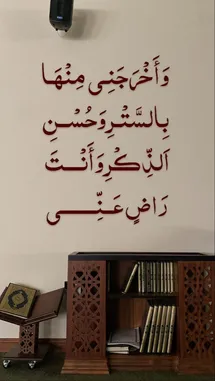 وَأَخْرَجَنِي مِنْهَا
بِالسَّتْرِ وَحُسْنِ
الذِّكْرِ وَأَنْتَ
رَاضٍ عَنِّي